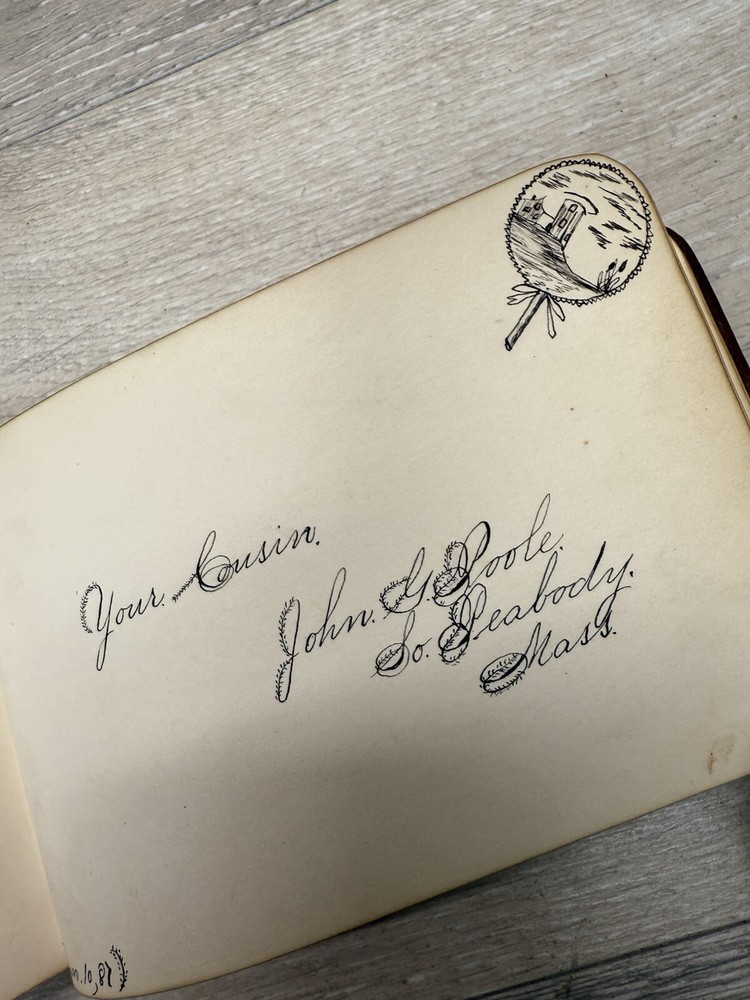 Your. Cusin.
John. G. Poole.
So. Peabody.
Mass.
10, 87